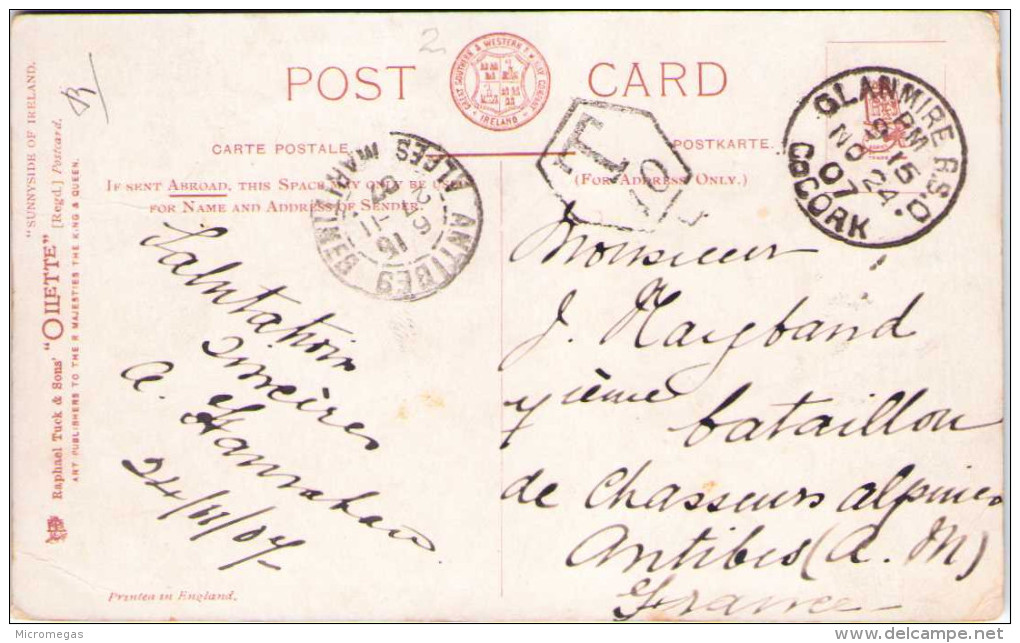 "SUNNYSIDE OF IRELAND.
Raphael Tuck & Sons' "OILETTE" [Regd.] Postcard.
ART PUBLISHERS TO THEIR MAJESTIES THE KING & QUEEN.
2
POST CARD
GREAT SOUTHERN & WESTERN RAILWAY COMPANY
· IRELAND ·
CARTE POSTALE
POSTKARTE.
IF SENT ABROAD, THIS SPACE MAY ONLY BE USED
FOR NAME AND ADDRESS OF SENDER.
(FOR ADDRESS ONLY.)
T
GLANMIRE R.S.O
5.15 PM
NO 24
07
Co CORK
ANTIBES
ALPES MARITIMES
Salutations
sincères
A. Hanrahan
24/11/07
Monsieur
J. Raybaud
7ième bataillon
de Chasseurs alpins
Antibes (A. M)
France
Printed in England.
Micromegas
delcampe.net